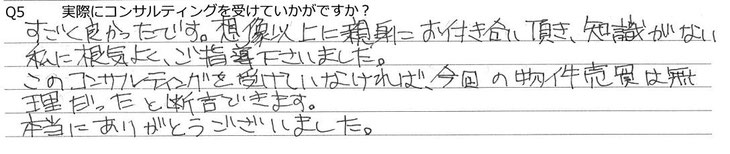 Q5 実際にコンサルティングを受けていかがですか？
すごく良かったです。想像以上に親身にお付き合い頂き、知識がない
私に根気よく、ご指導下さいました。
このコンサルティングを受けていなければ、今回の物件売買は無
理だったと断言できます。
本当にありがとうございました。